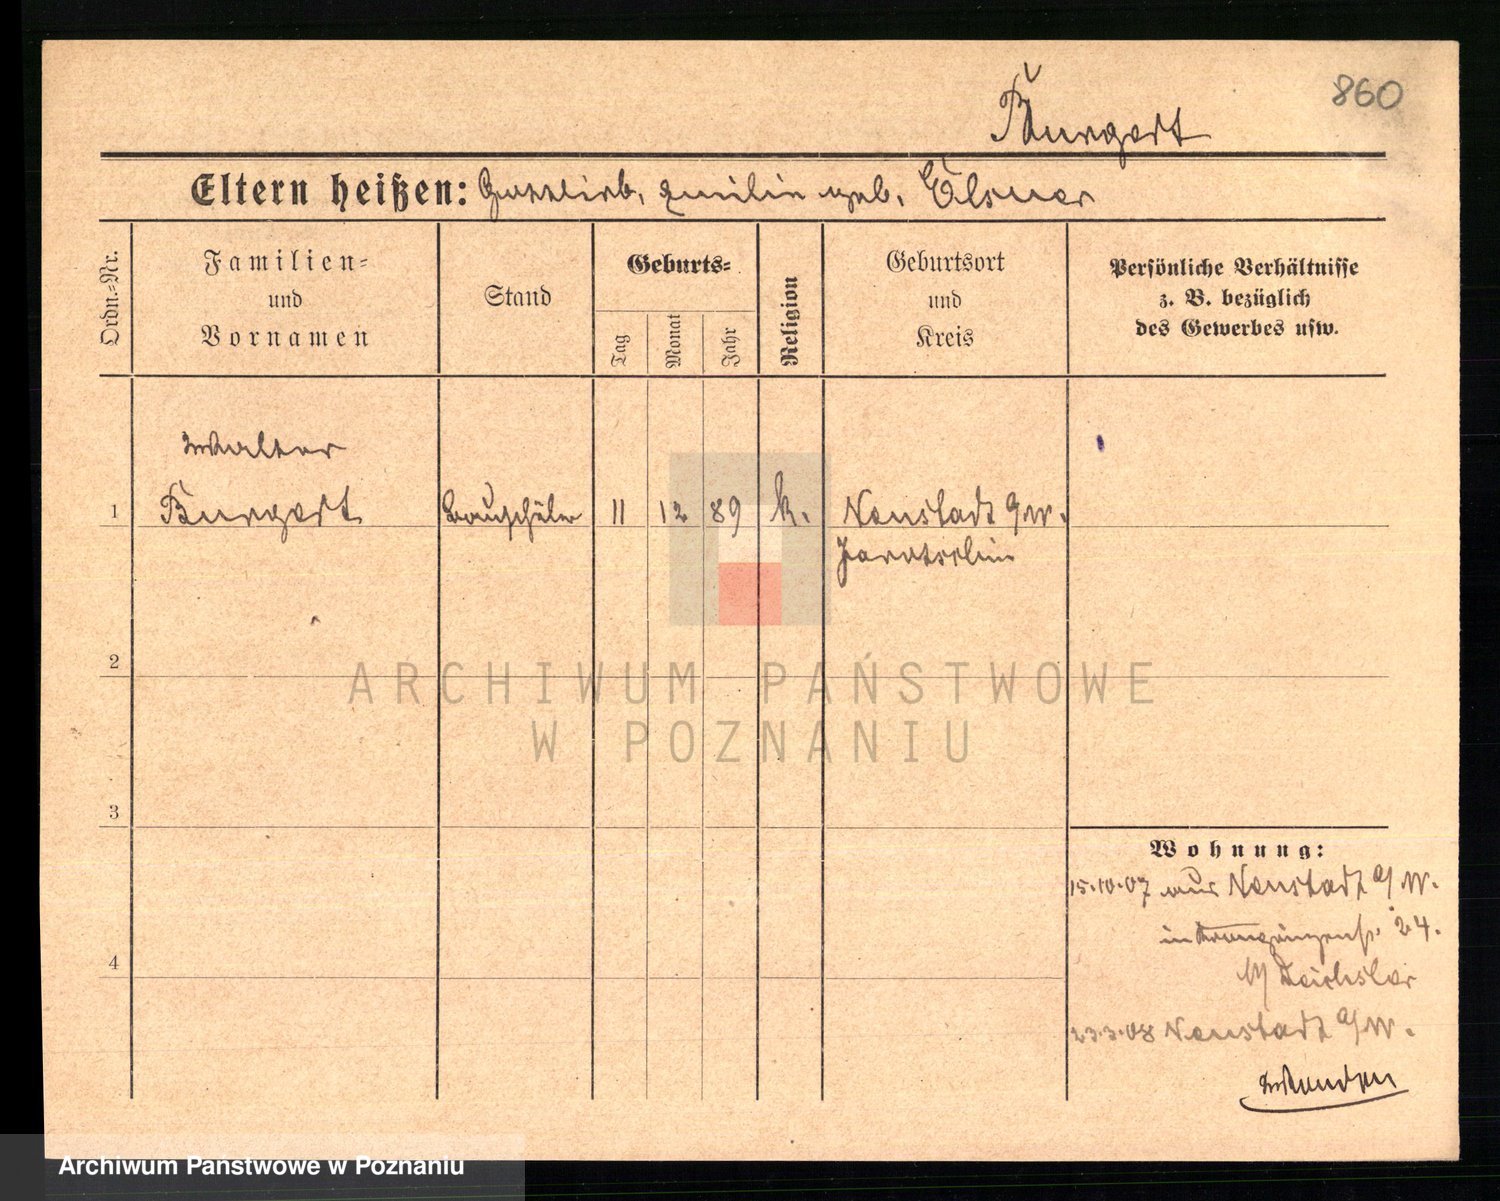 860
Burgert
Eltern heißen: Gottlieb, Emilie geb. Elsner
Ordn.=Nr.
Familien=
und
Vornamen
Stand
Geburts=
Tag
Monat
Jahr
Religion
Geburtsort
und
Kreis
Persönliche Verhältnisse
z. B. bezüglich
des Gewerbes usw.
Walter
1 Burgert Bauschüler 11 12 89 k. Neustadt a/W.
Jarotschin
2
ARCHIWUM PAŃSTWOWE
W POZNANIU
3
Wohnung:
15.10.07 aus Neustadt a/W.
in 24.
b/ Deichsler
4
23.3.08 Neustadt a/W.
Wenden
Archiwum Państwowe w Poznaniu